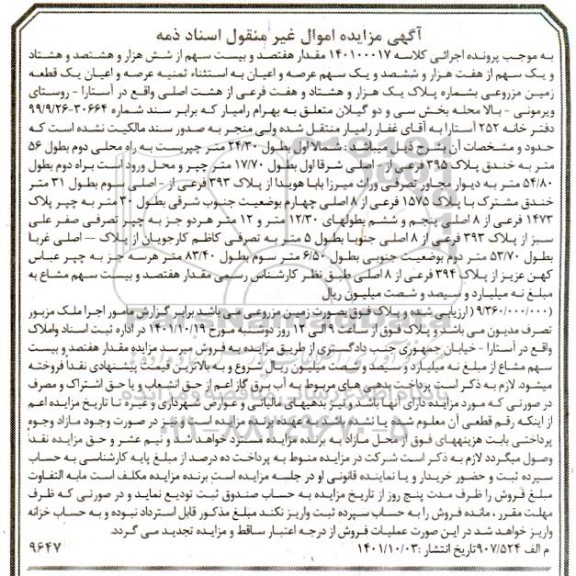 آگهی مزایده اموال غیر منقول اسناد ذمه
به موجب پرونده اجرائی کلاسه ۱۴۰۱۰۰۰۱۷ مقدار هفتصد و بیست سهم از شش هزار و هشتصد و هشتاد
و یک سهم از هفت هزار و ششصد و یک سهم عرصه و اعیان به استثناء ثمنیه عرصه و اعیان یک قطعه
زمین مزروعی بشماره پلاک یک هزار و هشتاد و هفت فرعی از هشت اصلی واقع در آستارا - روستای
ویرمونی - بالا محله بخش سی و دو گیلان متعلق به بهرام رامیار که برابر سند شماره ۳۰۶۶۴-۹۹/۹/۲۶
دفتر خانه ۲۵۲ آستارا به آقای غفار رامیار منتقل شده ولی منجر به صدور سند مالکیت نشده است که
حدود و مشخصات آن بشرح ذیل میباشد : شمالا اول بطول ۲۴/۳۰ متر چپریست به راه محلی دوم بطول ۵۶
متر به خندق پلاک ۳۹۵ فرعی از - اصلی شرقا اول بطول ۱۷/۷۰ متر چپر و محل ورود است براه دوم بطول
۵۴/۸۰ متر به دیوار مجاور تصرفی وراث میرزا بابا هویدا از پلاک ۳۹۳ فرعی از - اصلی سوم بطول ۳۱ متر
خندق مشترک با پلاک ۱۵۷۵ فرعی از ۸ اصلی چهارم بوضعیت جنوب شرقی بطول ۳۰ متر به چپر پلاک
۱۴۷۳ فرعی از ۸ اصلی پنجم و ششم بطولهای ۱۲/۳۰ متر و ۱۲ متر هردو جز به چپر تصرفی صفر علی
سبز از پلاک ۳۹۳ فرعی از ۸ اصلی جنوبا بطول ۵ متر به تصرفی کاظم کارجویان از پلاک -- اصلی غربا
بطول ۵۳/۷۰ متر دوم بوضعیت جنوبی بطول ۶/۵۰ متر سوم بطول ۸۳/۴۰ متر هرسه جز به چپر عباس
کهن عزیز از پلاک ۳۹۴ فرعی از ۸ اصلی طبق نظر کارشناس رسمی مقدار هفتصد و بیست سهم مشاع به
مبلغ نه میلیارد و سیصد و شصت میلیون ریال
(۹/۳۶۰/۰۰۰/۰۰۰) ارزیابی شده و پلاک فوق بصورت زمین مزروعی می باشد برابر گزارش مامور اجرا ملک مزبور
تصرف مدیون می باشد و پلاک فوق از ساعت ۹ الی ۱۲ روز دوشنبه مورخ ۱۴۰۱/۱۰/۱۹ در اداره ثبت اسناد واملاک
واقع در آستارا - خیابان جمهوری جنب دادگستری از طریق مزایده به فروش می رسد مزایده مقدار هفتصد و بیست
سهم مشاع از مبلغ نه میلیارد و سیصد و شصت میلیون ریال شروع و به بالاترین قیمت پیشنهادی نقدا فروخته
میشود. لازم به ذکر است پرداخت بدهی های مربوط به آب برق گاز اعم از حق انشعاب و یا حق اشتراک و مصرف
در صورتی که مورد مزایده دارای آنها باشد و نیز بدهیهای مالیاتی و عوارض شهرداری و غیره تا تاریخ مزایده اعم
از اینکه رقم قطعی آن معلوم شده یا نشده باشد بعهده برنده مزایده است و نیز در صورت وجود مازاد وجوه
پرداختی بابت هزینههای فوق از محل مازاد به برنده مزایده مسترد خواهد شد و نیم عشر و حق مزایده نقدا
وصول میگردد لازم به ذکر است شرکت در مزایده منوط به پرداخت ده درصد از مبلغ پایه کارشناسی به حساب
سپرده ثبت و حضور خریدار و یا نماینده قانونی او در جلسه مزایده است برنده مزایده مکلف است مابه التفاوت
مبلغ فروش را ظرف مدت پنج روز از تاریخ مزایده به حساب صندوق ثبت تودیع نماید و در صورتی که ظرف
مهلت مقرر ، مانده فروش را به حساب سپرده ثبت واریز نکند مبلغ مذکور قابل استرداد نبوده و به حساب خزانه
واریز خواهد شد در این صورت عملیات فروش از درجه اعتبار ساقط و مزایده تجدید می گردد.
م الف ۹۰۷/۵۲۴ تاریخ انتشار : ۱۴۰۱/۱۰/۰۳ ۹۶۴۷